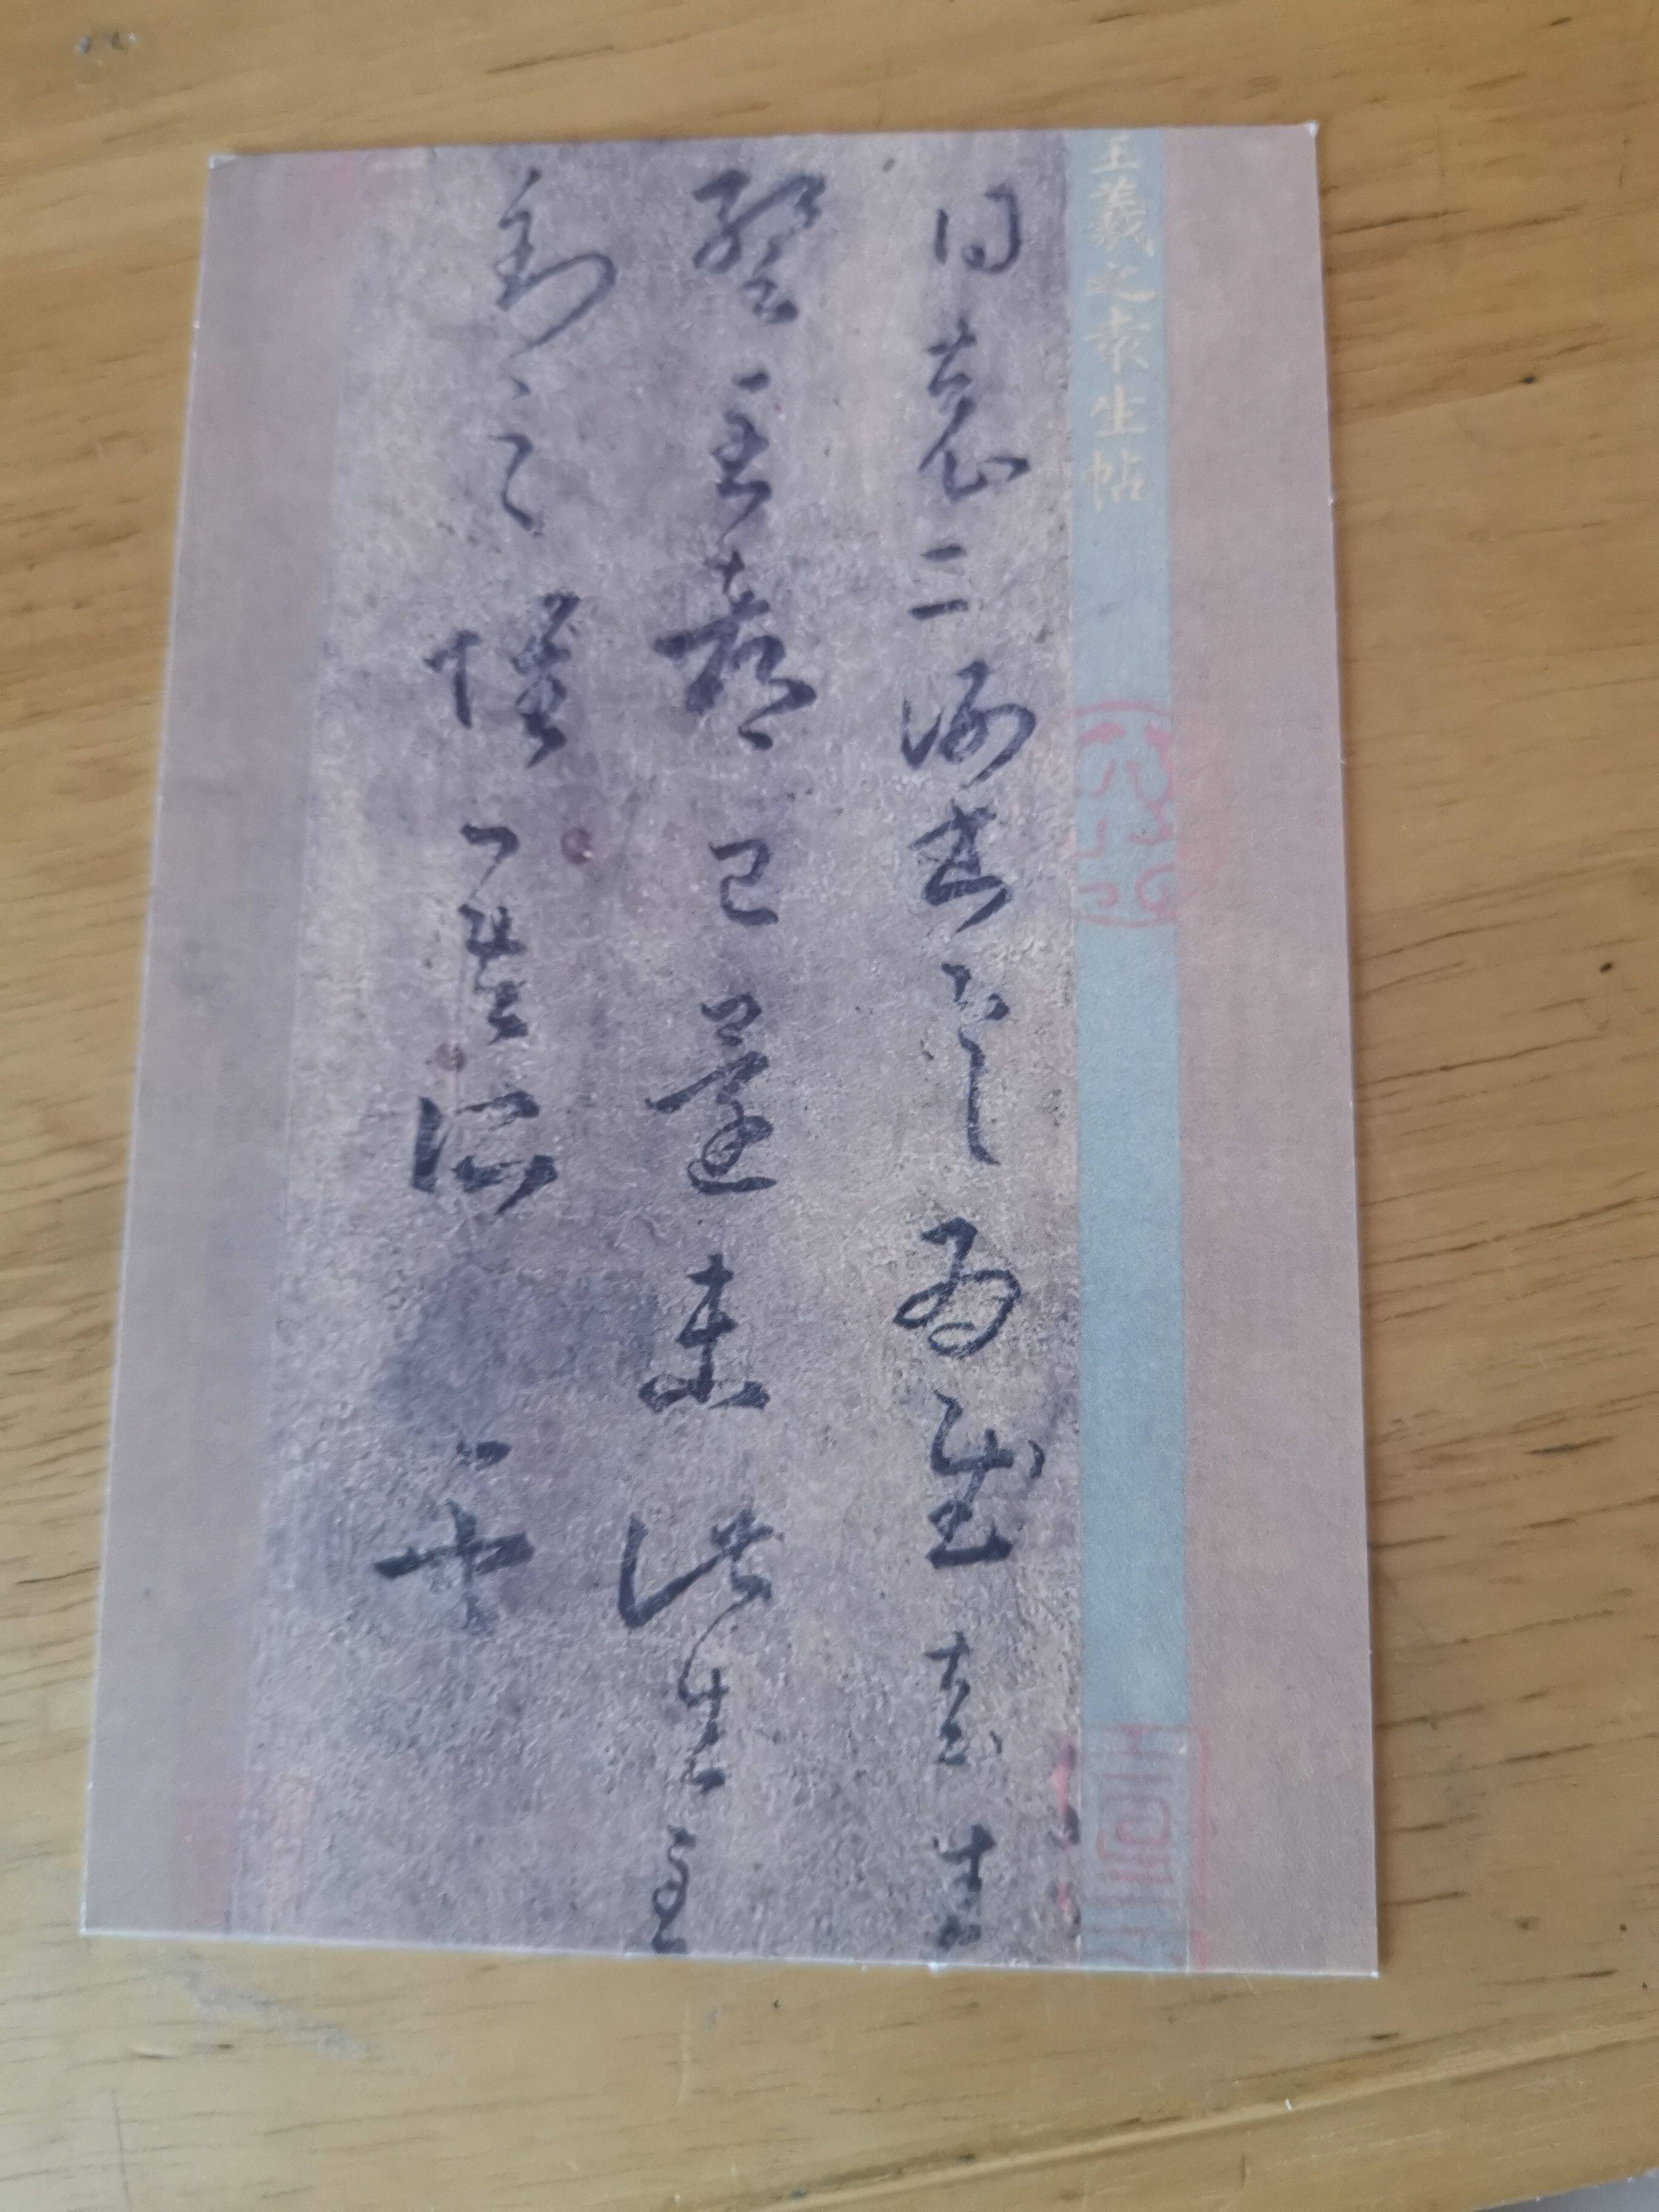 王羲之袁生帖
得袁二謝書具為慰袁生
暨至都已還未此生至
到之懷吾所盡也